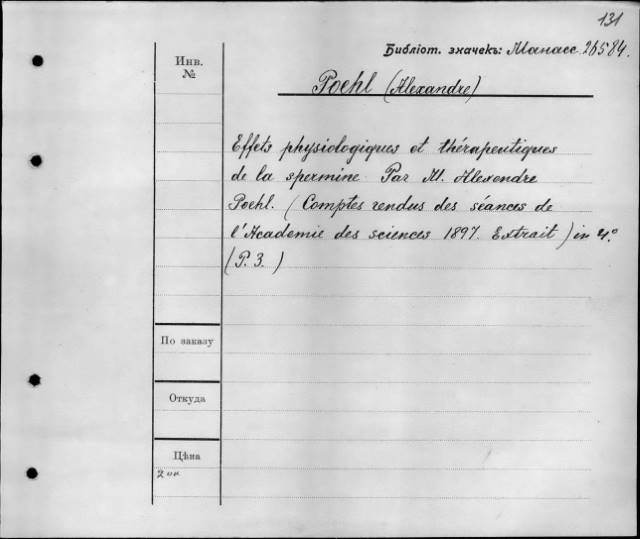 131
Библіот. значекъ: Манасс. 26584.
Инв.
№
Poehl (Alexandre)
Effets physiologiques et thérapeutiques
de la spermine. Par M. Alexendre
Poehl. (Comptes rendus des séances de
l'Academie des sciences 1897. Extrait) in 4º.
(P. 3.)
По заказу
Откуда
Цѣна